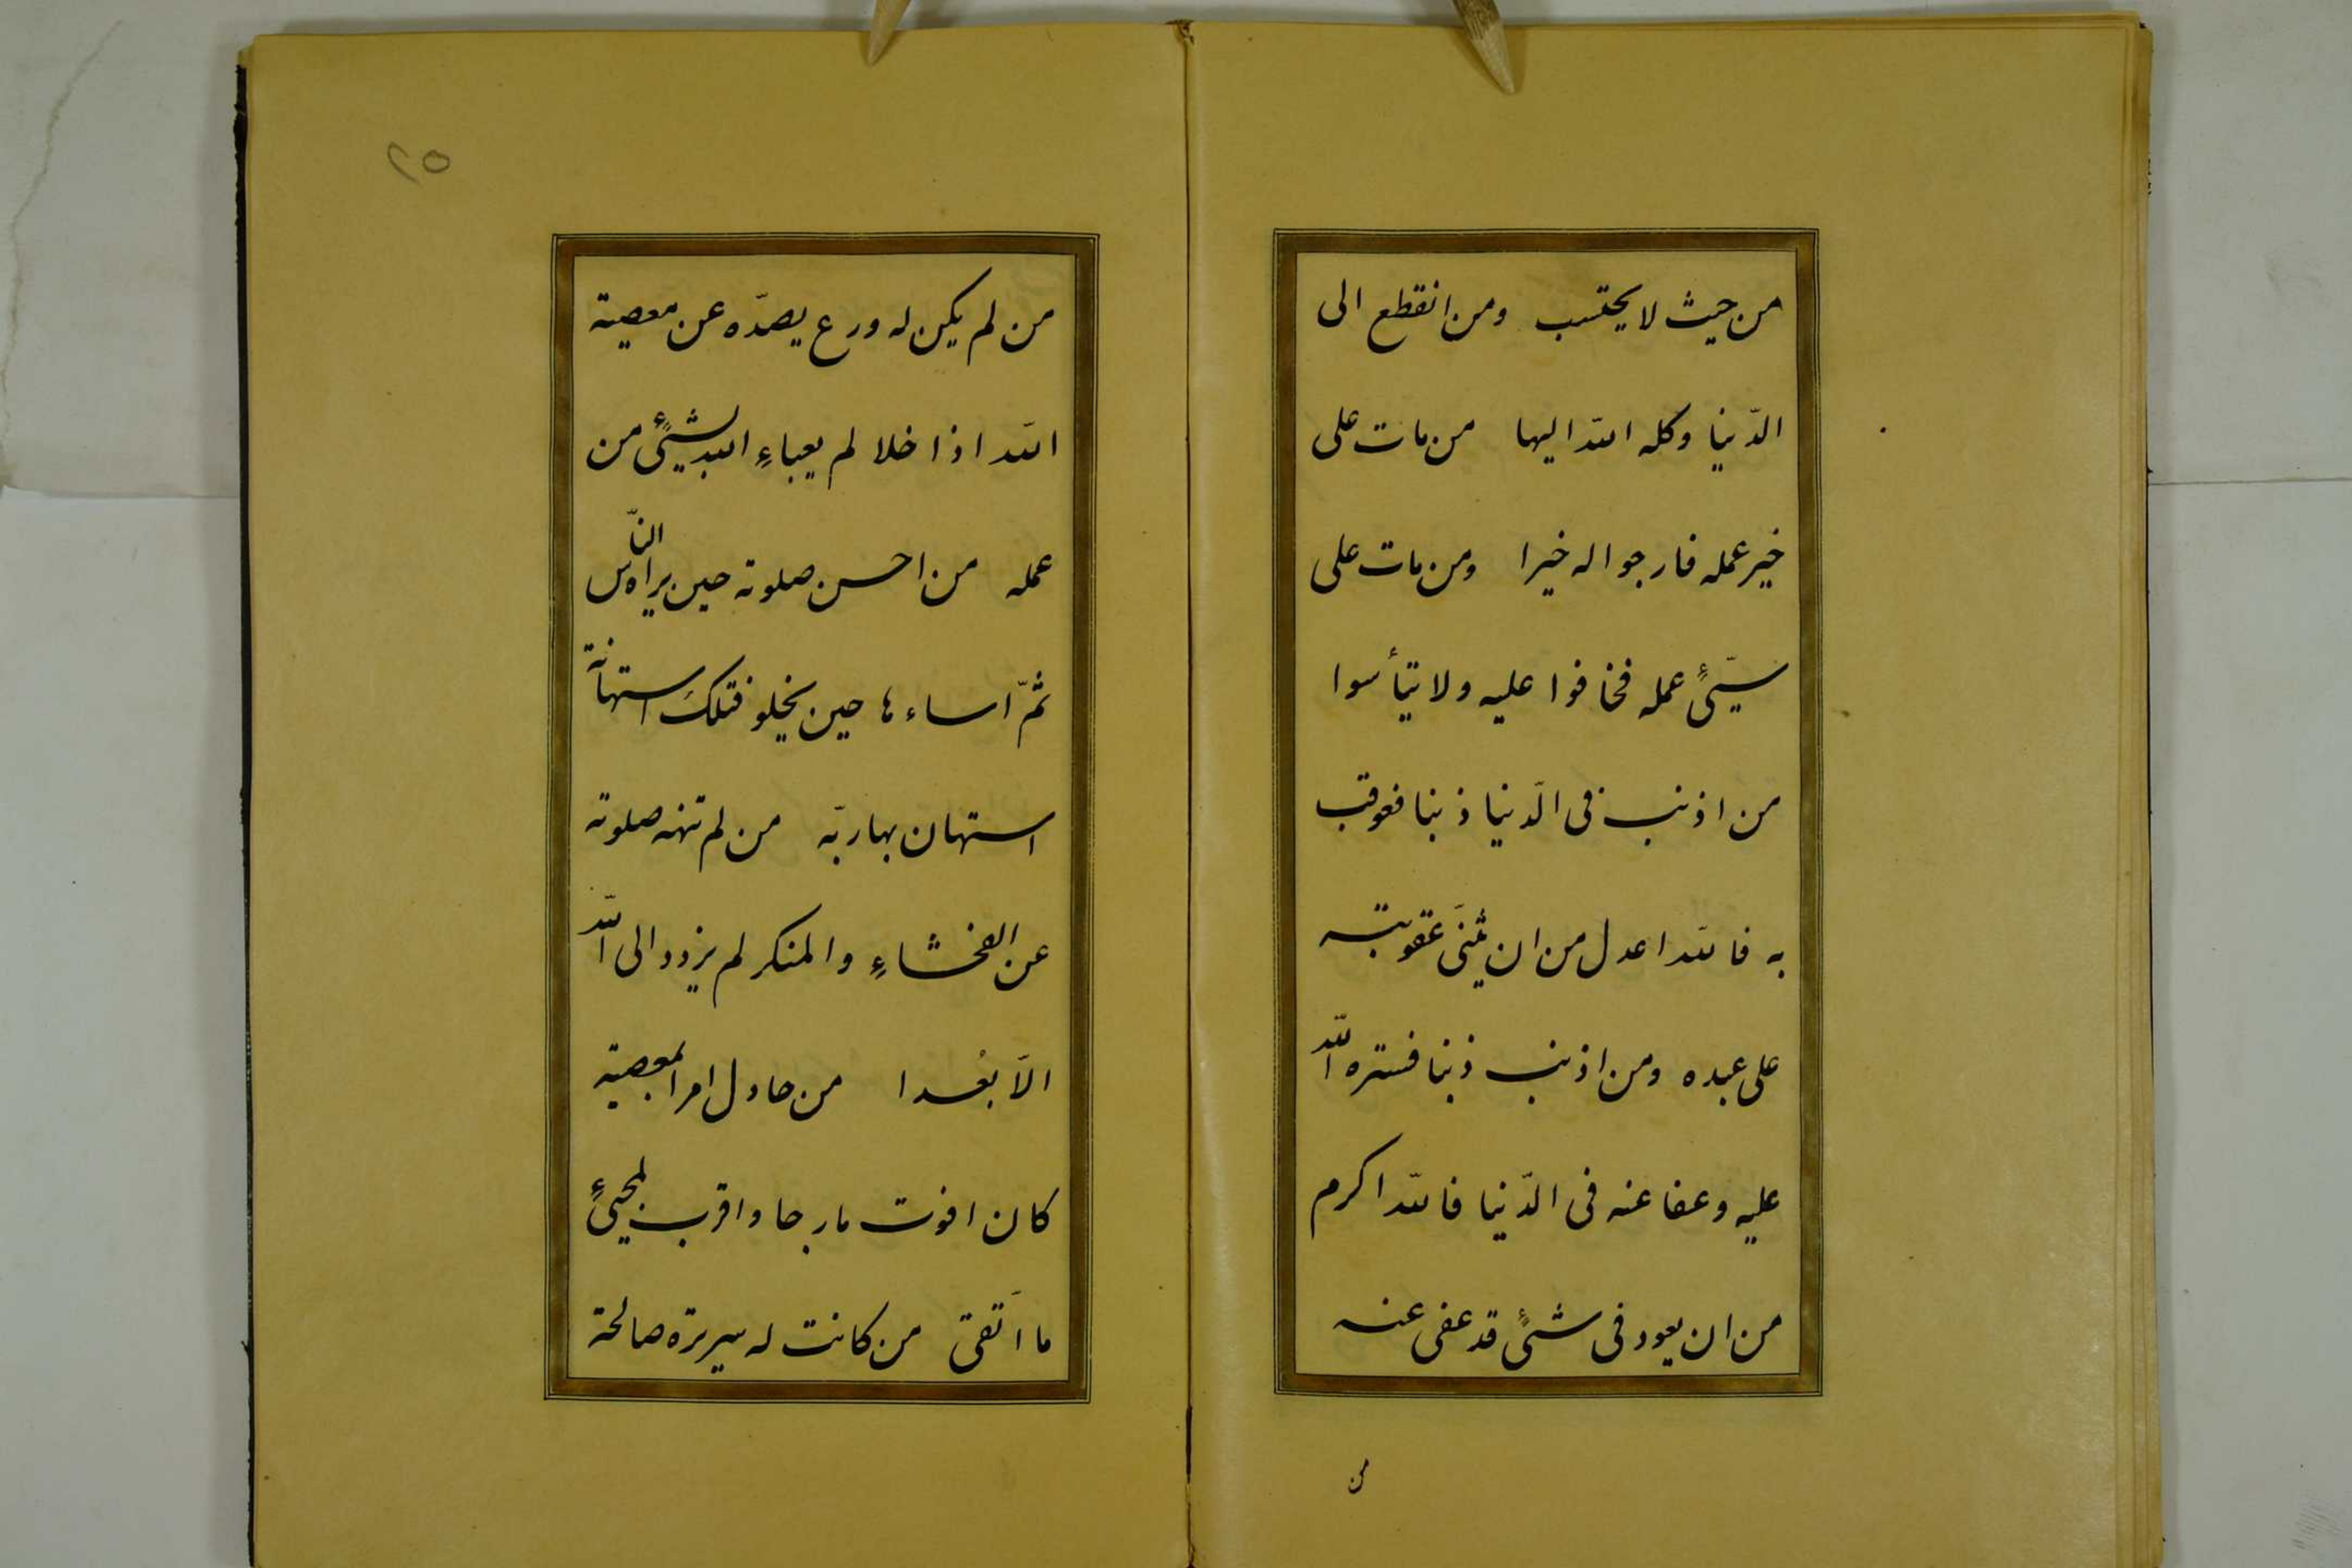 من حيث لا يحتسب ومن انقطع الى
الدّنيا وكله اللّه اليها من مات على
خير عمله فارجوا له خيرا ومن مات على
سيّئٍ عمله فخافوا عليه ولا تيأسوا
من اذنب فى الدّنيا ذنبا فعوقب
به فاللّه اعدل من ان يثنىَ عقوبته
على عبده ومن اذنب ذنبا فستره اللّه
عليه وعفا عنه فى الدّنيا فاللّه اكرم
من ان يعود فى شىءٍ قد عفى عنه
من
٢٥
من لم يكن له ورع يصدّه عن معصية
اللّه اذا خلا لم يعباءِ اللّه بشيئٍ من
عمله من احسن صلوته حين يراه النّاس
ثمّ اساءها حين يخلو فتلك استهانة
استهان بها ربّه من لم تنهه صلوته
عن الفحشاءِ والمنكر لم يزدد الى اللّه
الّا بُعدا من حاول امرا بمعصية
كان افوت ما رجا واقرب لمجيئٍ
ما اتّقى من كانت له سريرة صالحة